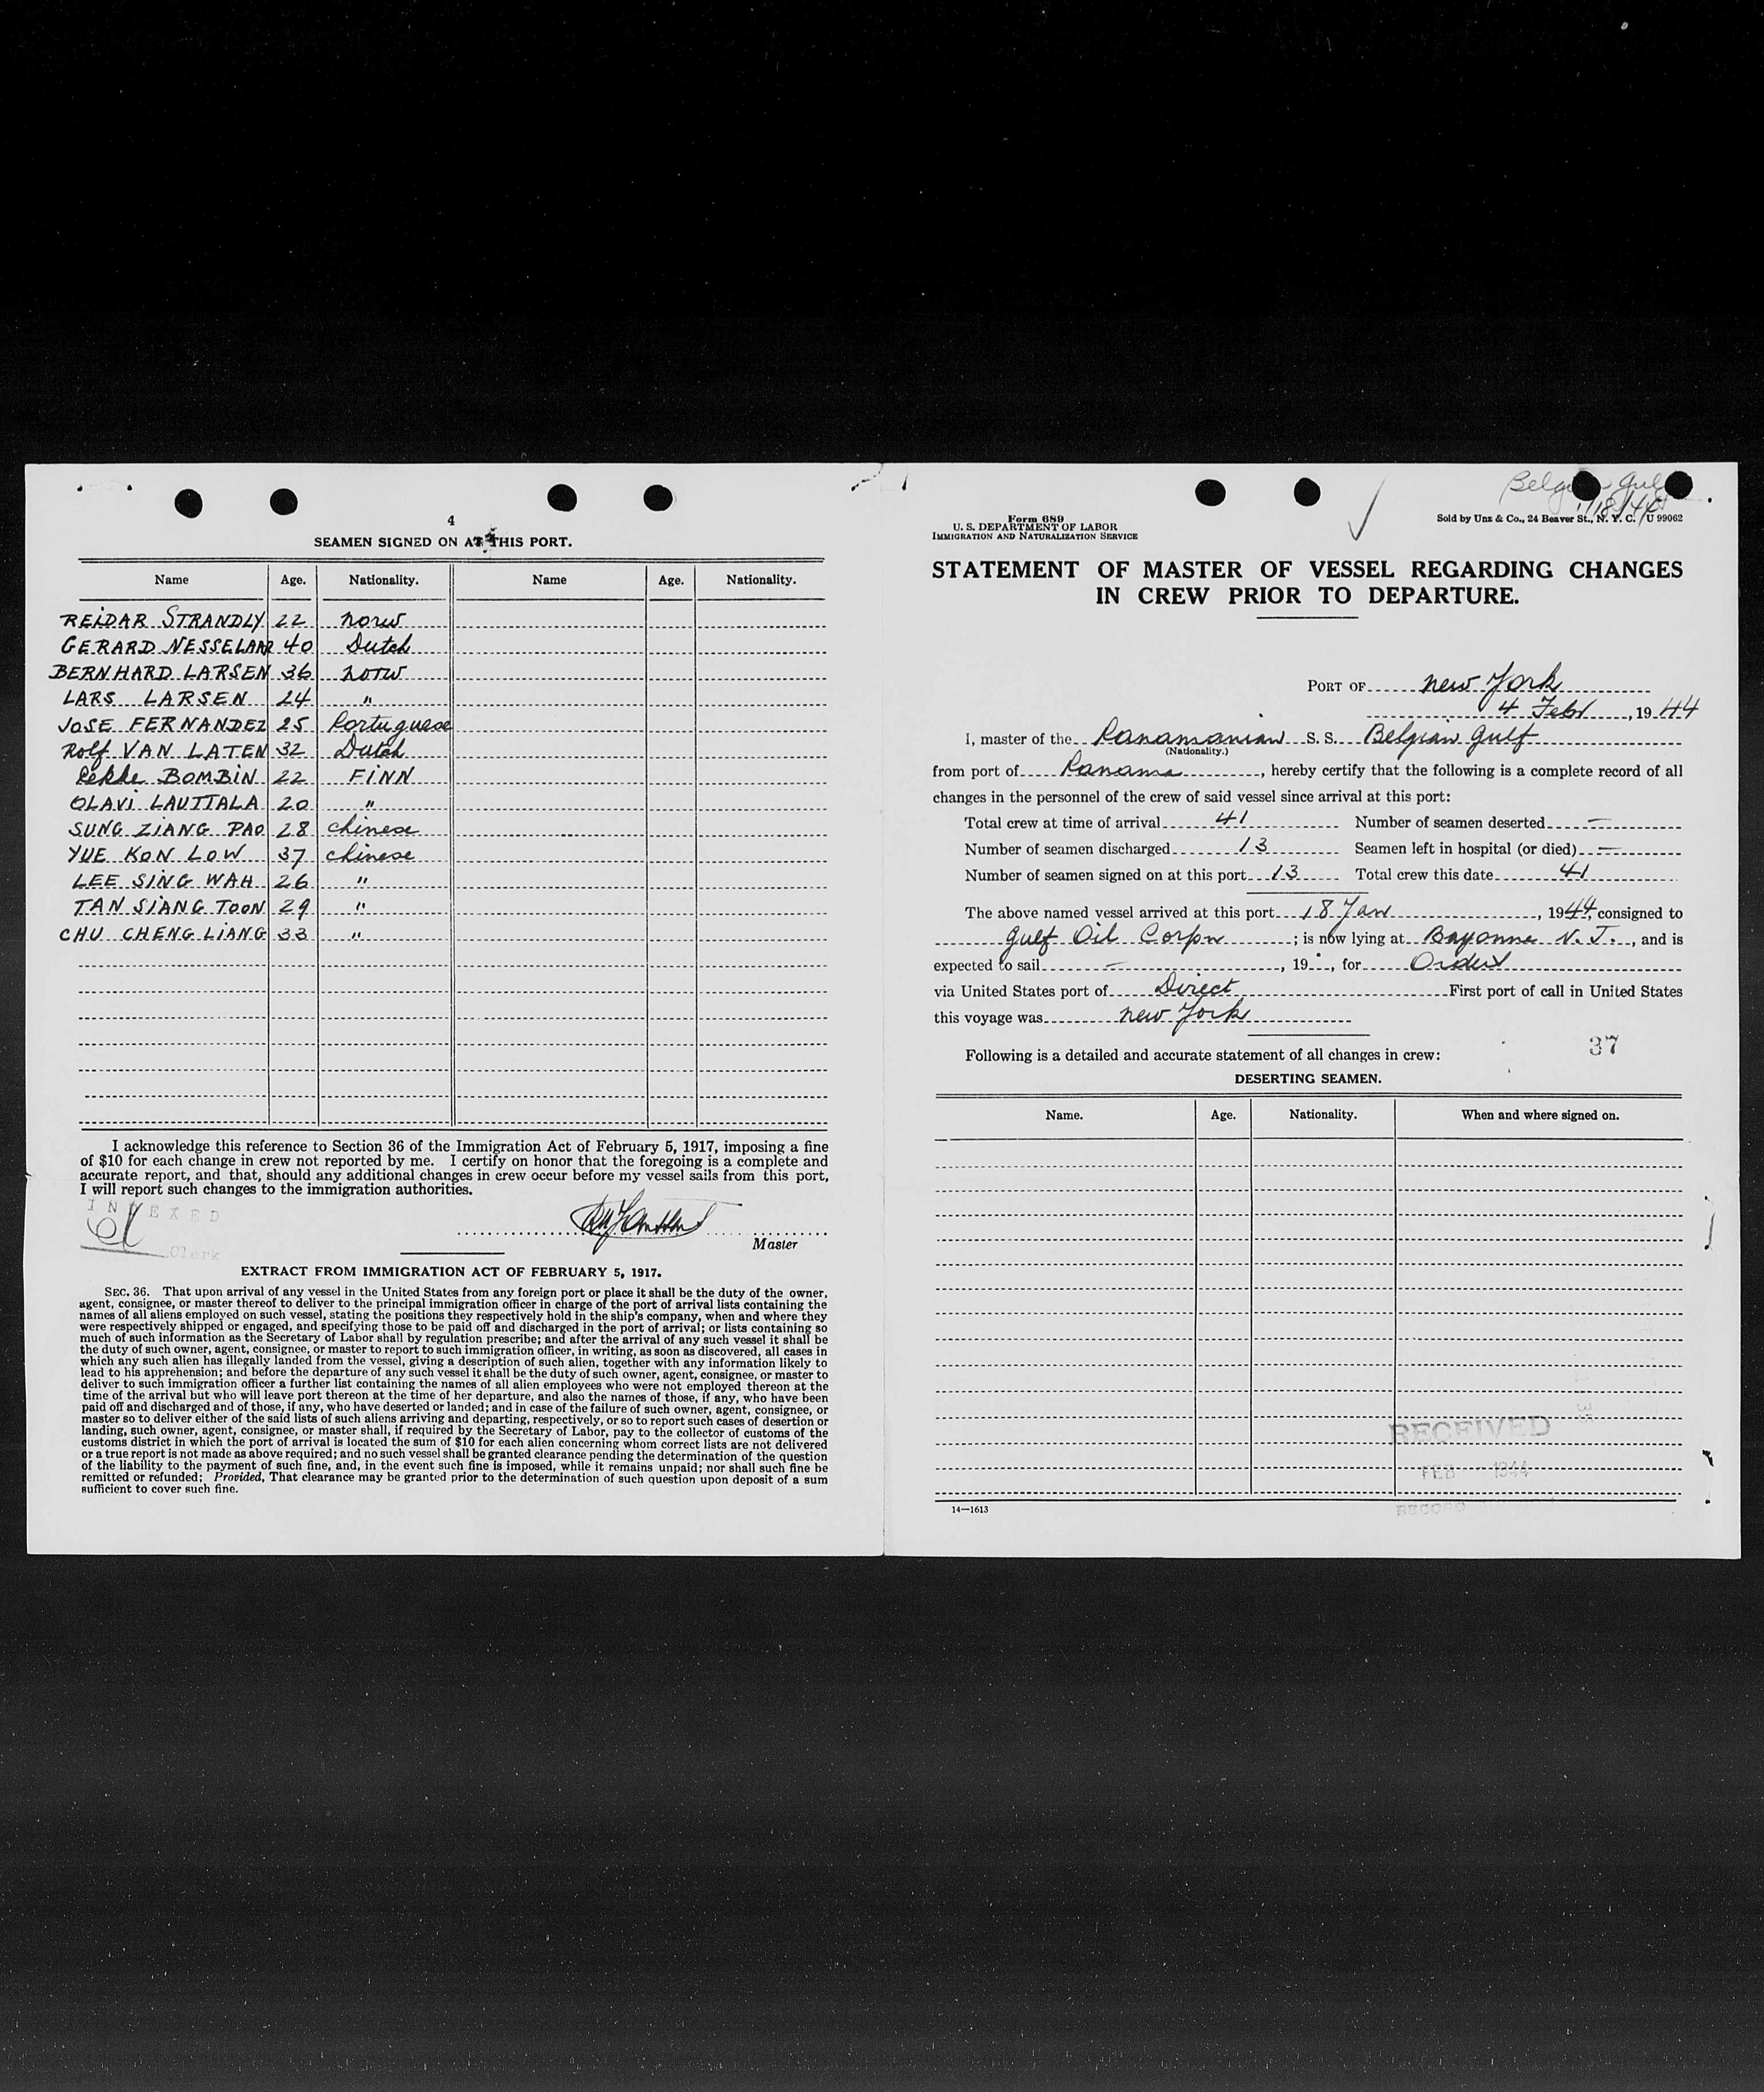 4
SEAMEN SIGNED ON AT THIS PORT.
Name Age. Nationality. Name Age. Nationality.
REIDAR STRANDLY 22 norw
GERARD NESSELAAR 40 Dutch
BERNHARD LARSEN 36 norw
LARS LARSEN 24 "
JOSE FERNANDEZ 25 Portuguese
Rolf VAN LATEN 32 Dutch
BOMBIN 22 FINN
OLAVI LAUTTALA 20 "
SUNG ZIANG PAO 28 chinese
YUE KON LOW 37 chinese
LEE SING WAH 26 "
TAN SIANG TOON 29 "
CHU CHENG LIANG 33 "
I acknowledge this reference to Section 36 of the Immigration Act of February 5, 1917, imposing a fine
of $10 for each change in crew not reported by me. I certify on honor that the foregoing is a complete and
accurate report, and that, should any additional changes in crew occur before my vessel sails from this port,
I will report such changes to the immigration authorities.
INDEXED
Clerk
Master
EXTRACT FROM IMMIGRATION ACT OF FEBRUARY 5, 1917.
SEC. 36. That upon arrival of any vessel in the United States from any foreign port or place it shall be the duty of the owner,
agent, consignee, or master thereof to deliver to the principal immigration officer in charge of the port of arrival lists containing the
names of all aliens employed on such vessel, stating the positions they respectively hold in the ship's company, when and where they
were respectively shipped or engaged, and specifying those to be paid off and discharged in the port of arrival; or lists containing so
much of such information as the Secretary of Labor shall by regulation prescribe; and after the arrival of any such vessel it shall be
the duty of such owner, agent, consignee, or master to report to such immigration officer, in writing, as soon as discovered, all cases in
which any such alien has illegally landed from the vessel, giving a description of such alien, together with any information likely to
lead to his apprehension; and before the departure of any such vessel it shall be the duty of such owner, agent, consignee, or master to
deliver to such immigration officer a further list containing the names of all alien employees who were not employed thereon at the
time of the arrival but who will leave port thereon at the time of her departure, and also the names of those, if any, who have been
paid off and discharged and of those, if any, who have deserted or landed; and in case of the failure of such owner, agent, consignee, or
master so to deliver either of the said lists of such aliens arriving and departing, respectively, or so to report such cases of desertion or
landing, such owner, agent, consignee, or master shall, if required by the Secretary of Labor, pay to the collector of customs of the
customs district in which the port of arrival is located the sum of $10 for each alien concerning whom correct lists are not delivered
or a true report is not made as above required; and no such vessel shall be granted clearance pending the determination of the question
of the liability to the payment of such fine, and, in the event such fine is imposed, while it remains unpaid; nor shall such fine be
remitted or refunded; Provided, That clearance may be granted prior to the determination of such question upon deposit of a sum
sufficient to cover such fine.
Belgian Gulf
1/18/44
Form 689
U. S. DEPARTMENT OF LABOR
IMMIGRATION AND NATURALIZATION SERVICE
Sold by Unz & Co., 24 Beaver St., N. Y. C. U 99062
STATEMENT OF MASTER OF VESSEL REGARDING CHANGES
IN CREW PRIOR TO DEPARTURE.
PORT OF new York
4 Febr, 1944
I, master of the Panamanian S. S. Belgian Gulf
(Nationality.)
from port of Panama, hereby certify that the following is a complete record of all
changes in the personnel of the crew of said vessel since arrival at this port:
Total crew at time of arrival 41 Number of seamen deserted —
Number of seamen discharged 13 Seamen left in hospital (or died) —
Number of seamen signed on at this port 13 Total crew this date 41
The above named vessel arrived at this port 18 Jan, 1944, consigned to
Gulf Oil Corpn; is now lying at Bayonne N. J., and is
expected to sail —, 19 , for Orders
via United States port of Direct First port of call in United States
this voyage was new York
Following is a detailed and accurate statement of all changes in crew:
37
DESERTING SEAMEN.
Name. Age. Nationality. When and where signed on.
RECEIVED
FEB 1944
RECORD
14—1613